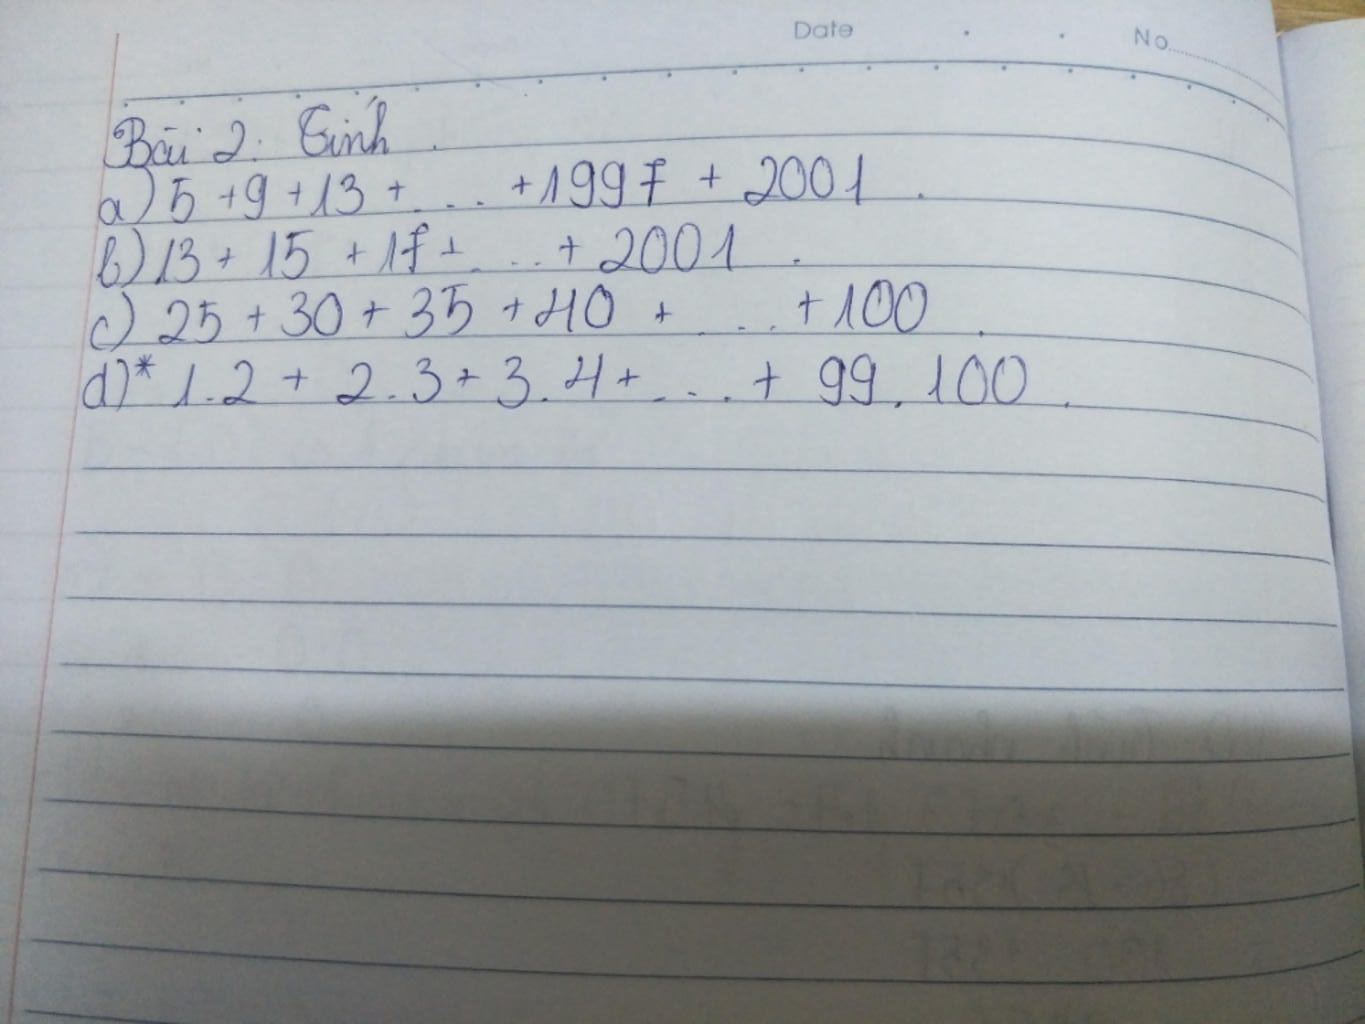 Date . . No......
Bài 2: Tính.
a) 5 + 9 + 13 + ... + 1997 + 2001.
b) 13 + 15 + 17 + ... + 2001.
c) 25 + 30 + 35 + 40 + ... + 100.
d)* 1.2 + 2.3 + 3.4 + ... + 99.100.